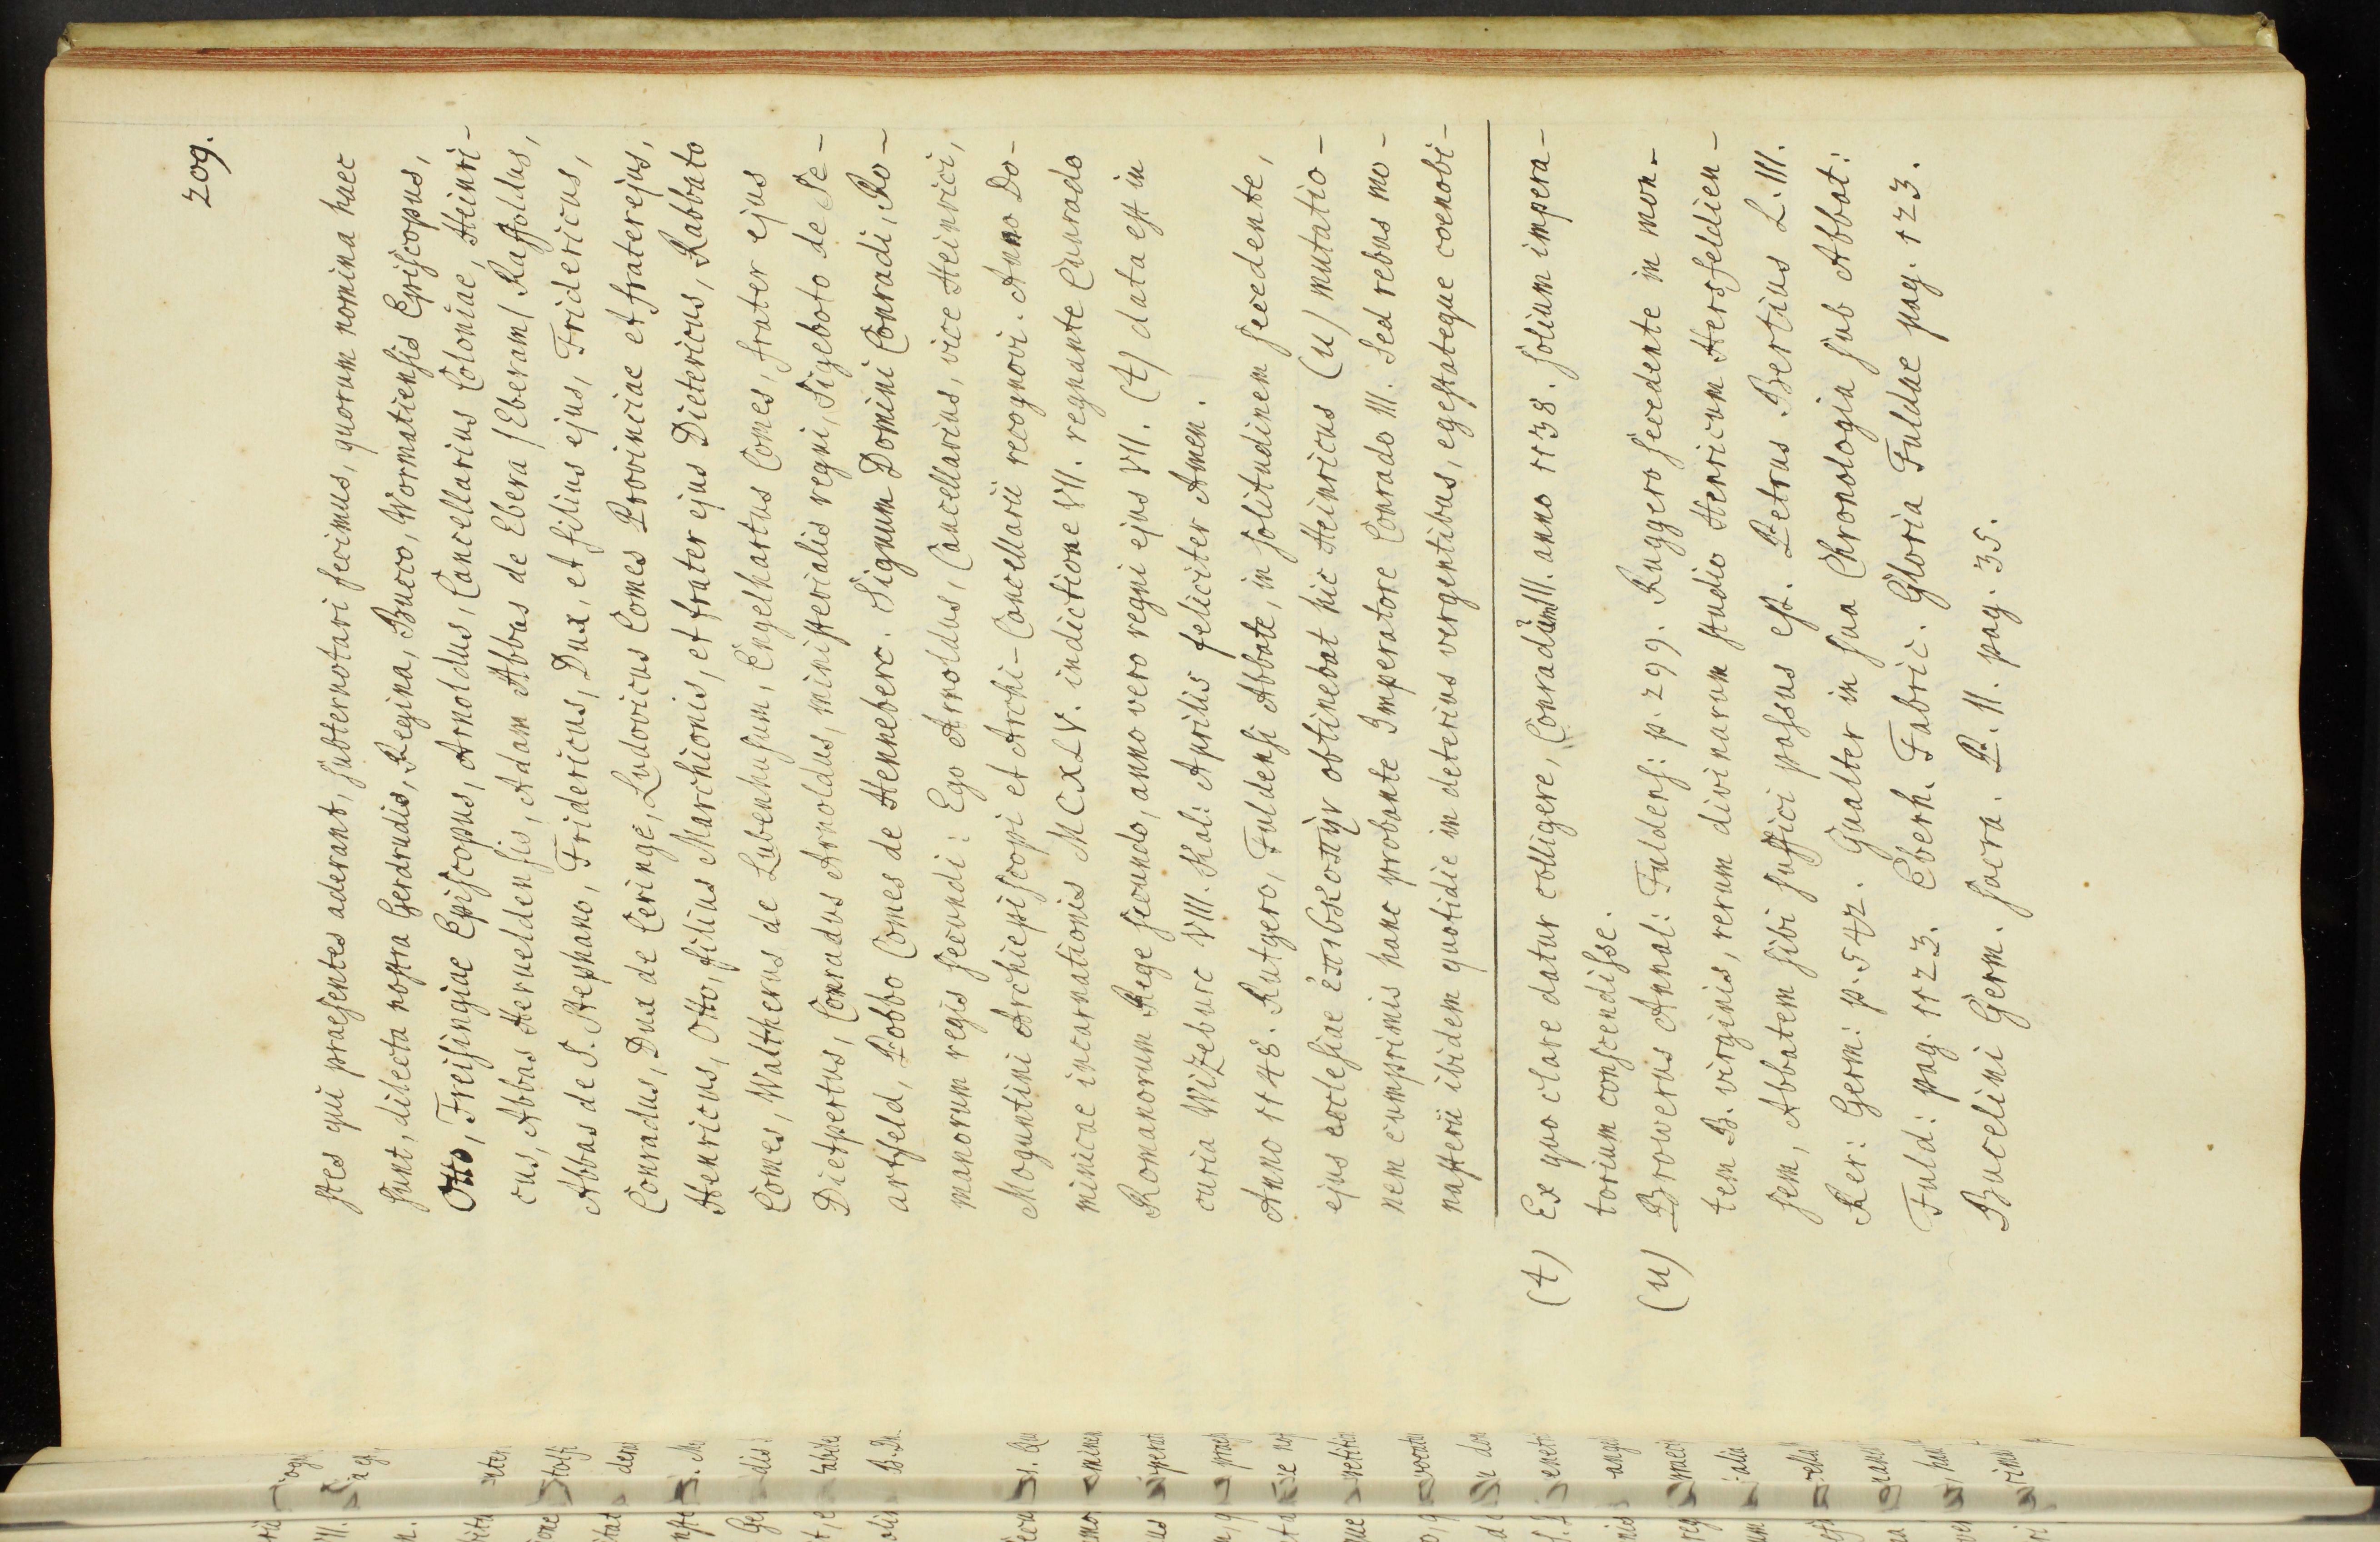 209.
stes qui praesentes aderant, subternotari fecimus, quorum nomina haec
sunt, dilecta nostra Gerdrudis, Regina, Bucco, Wormatiensis Episcopus,
Otto, Freisingiae Episcopus, Arnoldus, Cancellarius Coloniae, Heinri-
cus, Abbas Herueldensis, Adam Abbas de Ebera /Eberam/ Raffoldus,
Abbas de S. Stephano, Fridericus, Dux, et filius ejus, Fridericus,
Conradus, Dux de Ceringe, Ludovicus Comes Provinciae et frater ejus,
Henricus, Otto, filius Marchionis, et frater ejus Dietericus, Rabbato
Comes, Waltherus de Lubenhusum, Engelhartus Comes, frater ejus
Dietpertus, Conradus Arnoldus, ministerialis regni, Sigeboto de Se-
artfeld, Pobbo Comes de Henneberc. Signum Domini Conradi, Ro-
manorum regis secundi: Ego Arnoldus, Cancellarius, vice Heinrici,
Moguntini Archiepiscopi et Archi-Cancellarii recognovi. Anno Do-
minicae incarnationis MCXLV. indictione VII. regnante Cunrado
Romanorum Rege secundo, anno vero regni ejus VII. (t) data est in
curia Wizeburc VIII. Kal: Aprilis feliciter Amen.
Anno 1148. Rutgero, Fuldensi Abbate, in solitudinem secedente,
ejus ecclesiae ἐπισκοπὴν obtinebat hic Heinricus (u) mutatio-
nem cumprimis hanc probante Imperatore Conrado III. Sed rebus mo-
nasterii ibidem quotidie in deterius vergentibus, egestateque coenobi-
(t) Ex quo clare datur colligere, Conradum III. anno 1138. solium impera-
torium conscendisse.
(u) Browerus Annal: Fuldens: p. 299. Ruggero secedente in mon-
tem B. virginis, rerum divinarum studio Henricum Hersfeldien-
sem, Abbatem sibi suffici passus est. Petrus Bertius L. III.
Rer: Germ: p. 542. Gualter in sua Chronologia sub Abbat:
Fuld: pag. 1123. Eberh. Fabric. Gloria Fuldae pag. 123.
Bucelini Germ. sacra. P. II. pag. 35.